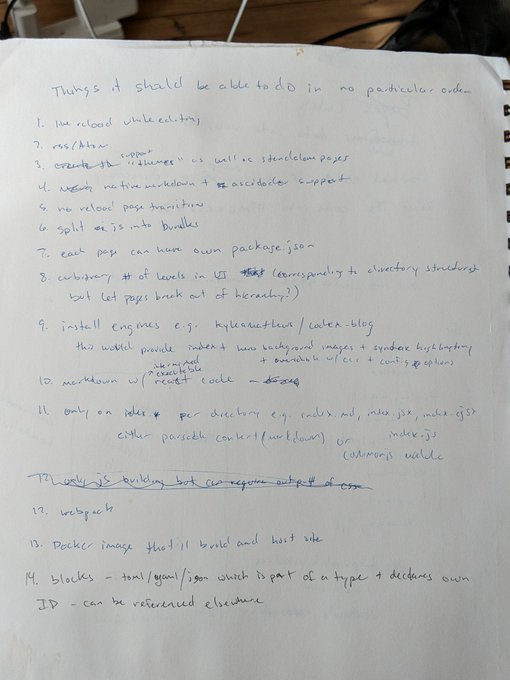 Things it should be able to do in no particular order
1. live reload while editing
2. rss/Atom
3. support "themes" as well as standalone pages
4. native markdown + asciidoctor support
5. no reload page transition
6. split js into bundles
7. each page can have own package.json
8. arbitrary # of levels in (corresponding to directory structure
but let pages break out of hierarchy?)
9. install engines e.g. kyleamathews/codex-blog
this would provide index + hero background images + syntax highlighting
+ overridable w/ css + config options
10. markdown w/ intermixed executable react code
11. only on index.* per directory e.g. index.md, index.jsx, index.cjsx
either parsable content (markdown) or index.js
commonjs module
12. only js building but can require output of css
12. webpack
13. Docker image that'll build and host site
14. blocks - toml/yaml/json which is part of a type + declares own
ID - can be referenced elsewhere